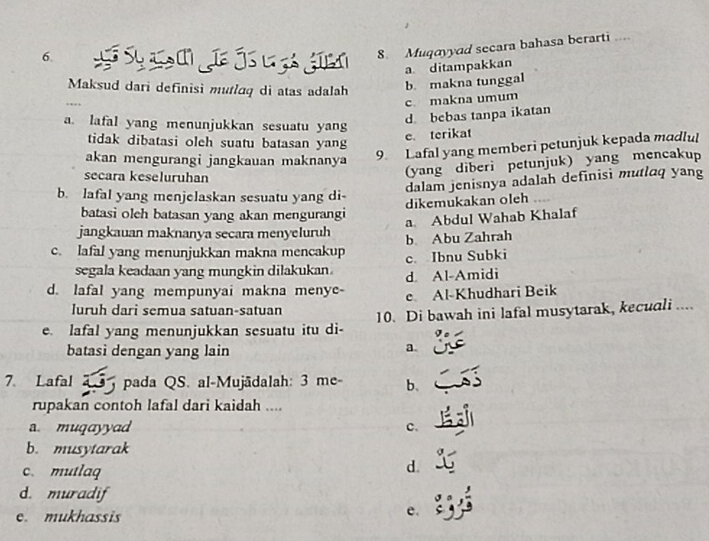 6. اَلْمُطْلَقُ هُوَ مَا دَلَّ عَلَى الْمَاهِيَةِ بِلَا قَيْدٍ
Maksud dari definisi mutlaq di atas adalah
....
a. lafal yang menunjukkan sesuatu yang
tidak dibatasi oleh suatu batasan yang
akan mengurangi jangkauan maknanya
secara keseluruhan
b. lafal yang menjelaskan sesuatu yang di-
batasi oleh batasan yang akan mengurangi
jangkauan maknanya secara menyeluruh
c. lafal yang menunjukkan makna mencakup
segala keadaan yang mungkin dilakukan.
d. lafal yang mempunyai makna menye-
luruh dari semua satuan-satuan
e. lafal yang menunjukkan sesuatu itu di-
batasi dengan yang lain
7. Lafal رَقَبَةٍ pada QS. al-Mujādalah: 3 me-
rupakan contoh lafal dari kaidah ....
a. muqayyad
b. musytarak
c. mutlaq
d. muradif
e. mukhassis
8. Muqayyad secara bahasa berarti ....
a. ditampakkan
b. makna tunggal
c. makna umum
d. bebas tanpa ikatan
e. terikat
9. Lafal yang memberi petunjuk kepada madlul
(yang diberi petunjuk) yang mencakup
dalam jenisnya adalah definisi mutlaq yang
dikemukakan oleh ....
a. Abdul Wahab Khalaf
b. Abu Zahrah
c. Ibnu Subki
d. Al-Amidi
e. Al-Khudhari Beik
10. Di bawah ini lafal musytarak, kecuali ....
a. عَيْنٌ
b. ذَهَبَ
c. الْقِطُّ
d. يَدٌ
e. قُرُوْءٌ